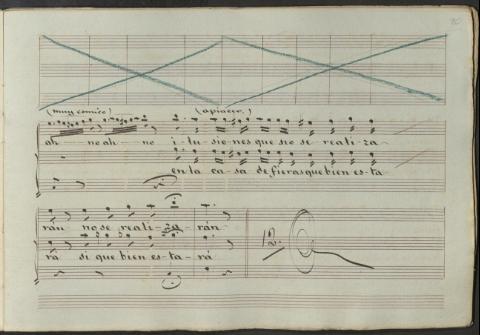 (muy comico) (a piacer.)
ah - no ah - no i - lu - sio - nes que sio se realiza -
en la ca - sa de fieras que bien es - ta
rán no se reali - za - rán
rá si que bien es - ta - rá
12.